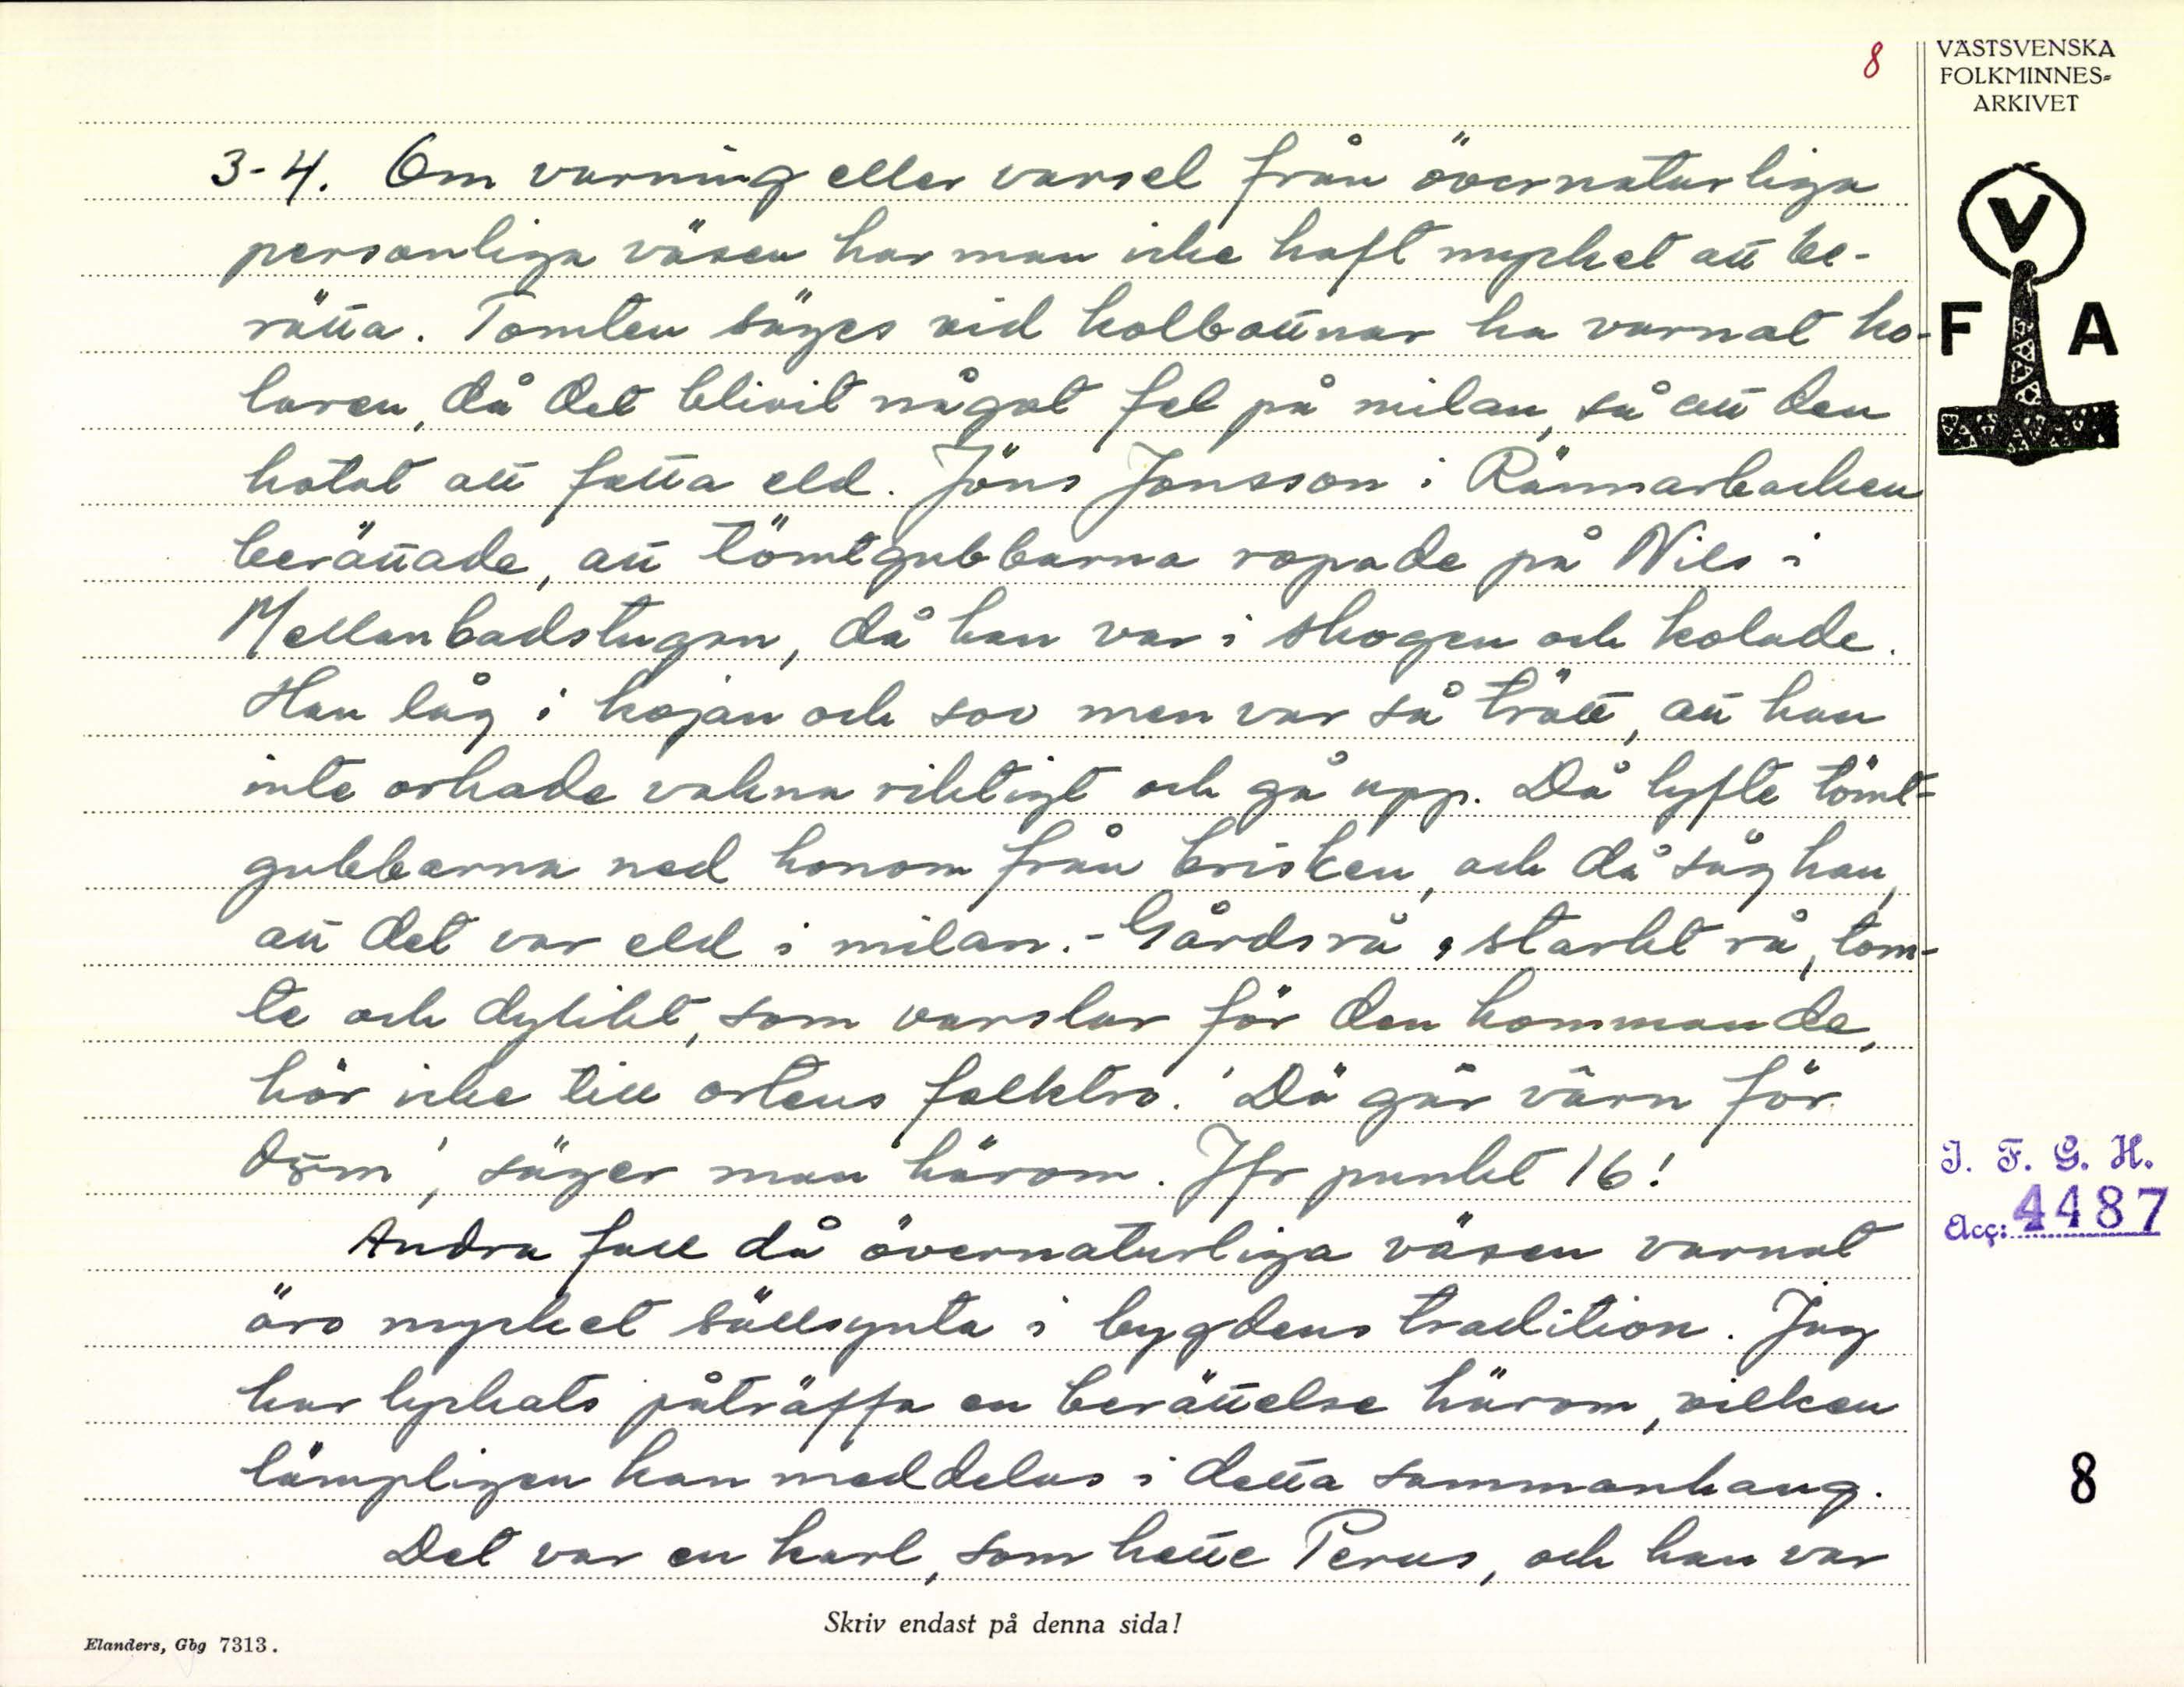 8
VÄSTSVENSKA
FOLKMINNES-
ARKIVET
V
F A
3-4. Om varning eller varsel från övernaturliga
personliga väsen har man icke haft mycket att be-
rätta. Tomten säges vid kolbottnar ha varnat ko-
laren, då det blivit något fel på milan, så att den
hotat att fatta eld. Jöns Jonsson i Rännarbacken
berättade, att tömtgubbarna ropade på Nils i
Mellanbadstugan, då han var i skogen och kolade.
Han låg i kojan och sov men var så trött, att han
inte orkade vakna riktigt och gå upp. Då lyfte tömt-
gubbarna ned honom från brisken, och då såg han,
att det var eld i milan. - Gårdsrå, starkt rå, tom-
te och dylikt, som varslar för den kommande,
hör icke till ortens folktro. 'Dä går vårn för
, säger man härom. Jfr punkt 16!
Andra fall då övernaturliga väsen varnat
äro mycket sällsynta i bygdens tradition. Jag
har lyckats påträffa en berättelse härom, vilken
lämpligen kan meddelas i detta sammanhang.
Det var en karl, som hette Perus, och han var
I. F. G. H.
Acc: 4487
8
Skriv endast på denna sida!
Elanders, Gbg 7313.